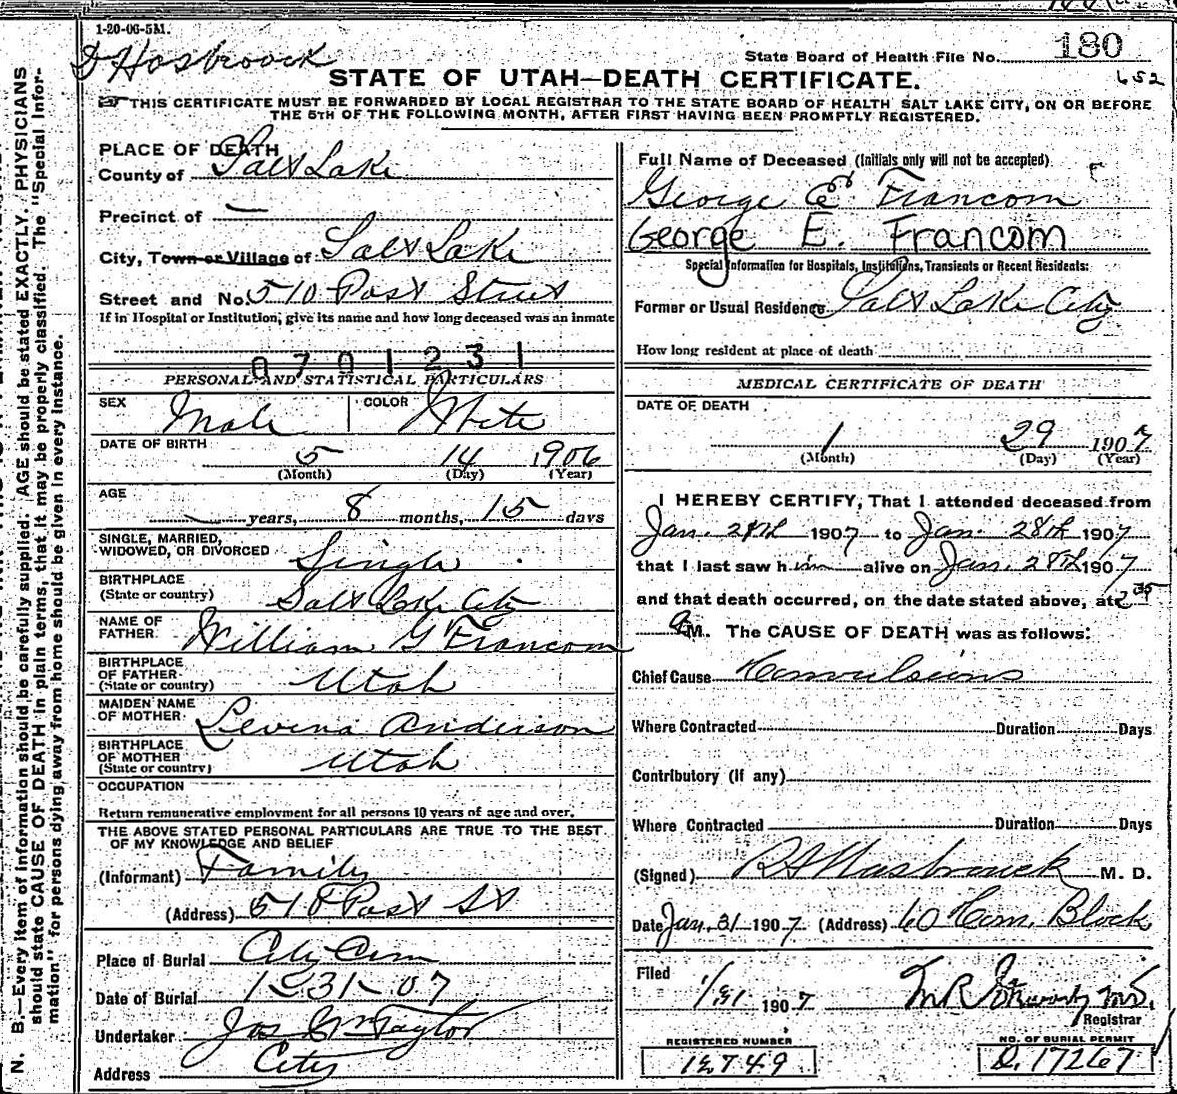 1-20-06-5M.
D Hasbrouck
State Board of Health File No. 180
652
STATE OF UTAH—DEATH CERTIFICATE.
THIS CERTIFICATE MUST BE FORWARDED BY LOCAL REGISTRAR TO THE STATE BOARD OF HEALTH SALT LAKE CITY, ON OR BEFORE
THE 5TH OF THE FOLLOWING MONTH, AFTER FIRST HAVING BEEN PROMPTLY REGISTERED.
N. B.—Every item of information should be carefully supplied. AGE should be stated EXACTLY. PHYSICIANS
should state CAUSE OF DEATH in plain terms, that it may be properly classified. The "Special Infor-
mation" for persons dying away from home should be given in every instance.
PLACE OF DEATH
County of Salt Lake
Precinct of —
City, Town or Village of Salt Lake
Street and No. 510 Post Street
If in Hospital or Institution, give its name and how long deceased was an inmate
0701231
PERSONAL AND STATISTICAL PARTICULARS
SEX Male COLOR White
DATE OF BIRTH
5 14 1906
(Month) (Day) (Year)
AGE
years, 8 months, 15 days
SINGLE, MARRIED,
WIDOWED, OR DIVORCED Single
BIRTHPLACE
(State or country) Salt Lake City
NAME OF
FATHER William G Francom
BIRTHPLACE
OF FATHER
(State or country) Utah
MAIDEN NAME
OF MOTHER Levina Anderson
BIRTHPLACE
OF MOTHER
(State or country) Utah
OCCUPATION
Return remunerative employment for all persons 10 years of age and over.
THE ABOVE STATED PERSONAL PARTICULARS ARE TRUE TO THE BEST
OF MY KNOWLEDGE AND BELIEF
(Informant) Family
(Address) 510 Post St
Place of Burial City Cem
Date of Burial 1-31-07
Undertaker Jos Wm Taylor
Address City
Full Name of Deceased (Initials only will not be accepted)
George E Francom
George E. Francom
Special Information for Hospitals, Institutions, Transients or Recent Residents:
Former or Usual Residence Salt Lake City
How long resident at place of death
MEDICAL CERTIFICATE OF DEATH
DATE OF DEATH
1 29 1907
(Month) (Day) (Year)
I HEREBY CERTIFY, That I attended deceased from
Jan. 28th 1907 to Jan. 28th 1907
that I last saw him alive on Jan. 28th 1907
and that death occurred, on the date stated above, at 2 35
A M. The CAUSE OF DEATH was as follows:
Chief Cause Convulsions
Where Contracted Duration Days
Contributory (if any)
Where Contracted Duration Days
(Signed) Hasbrouck M. D.
Date Jan. 31 1907 (Address) 60 Com. Block
Filed
1/31 1907
Registrar
REGISTERED NUMBER
12749
NO. OF BURIAL PERMIT
D. 17267